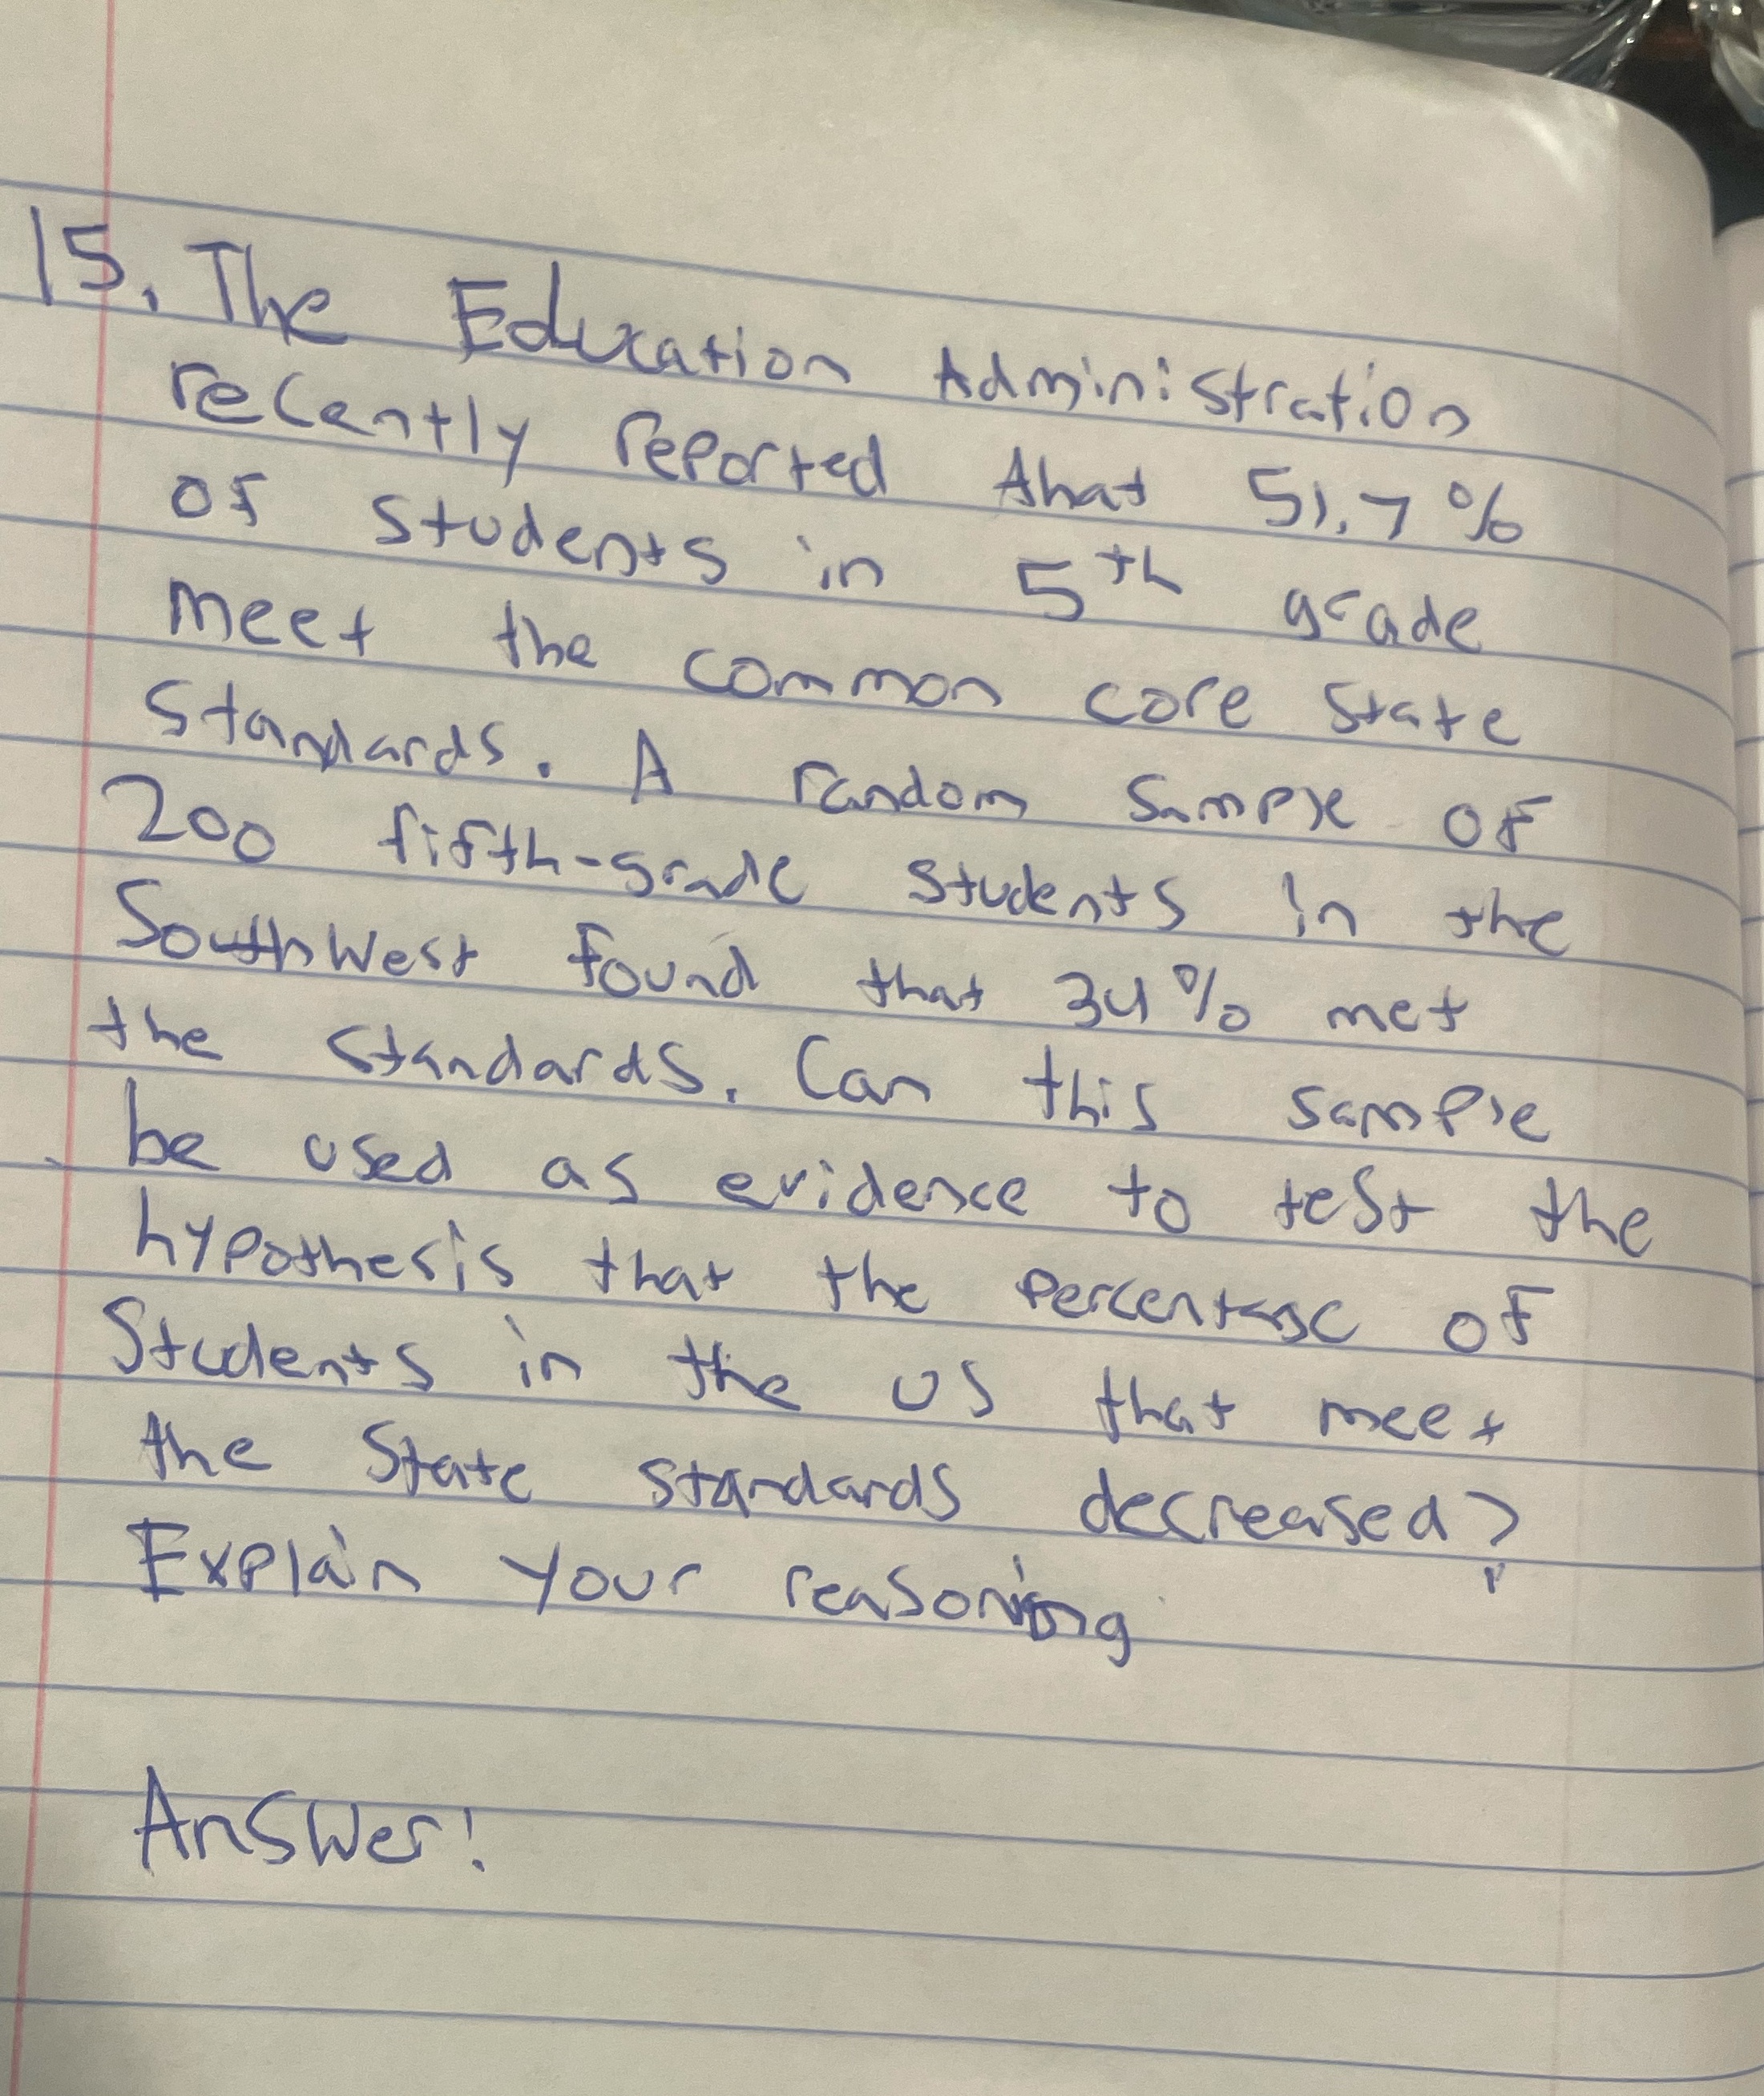 15. The Education Administration
recently reported that 51.7%
of students in 5th grade
meet the common core state
standards. A random sample of
200 fifth-grade students in the
Southwest found that 34% met
the standards. Can this sample
be used as evidence to test the
hypothesis that the percentage of
Students in the US that meet
the State standards decreased?
Explain your reasoning
Answer!